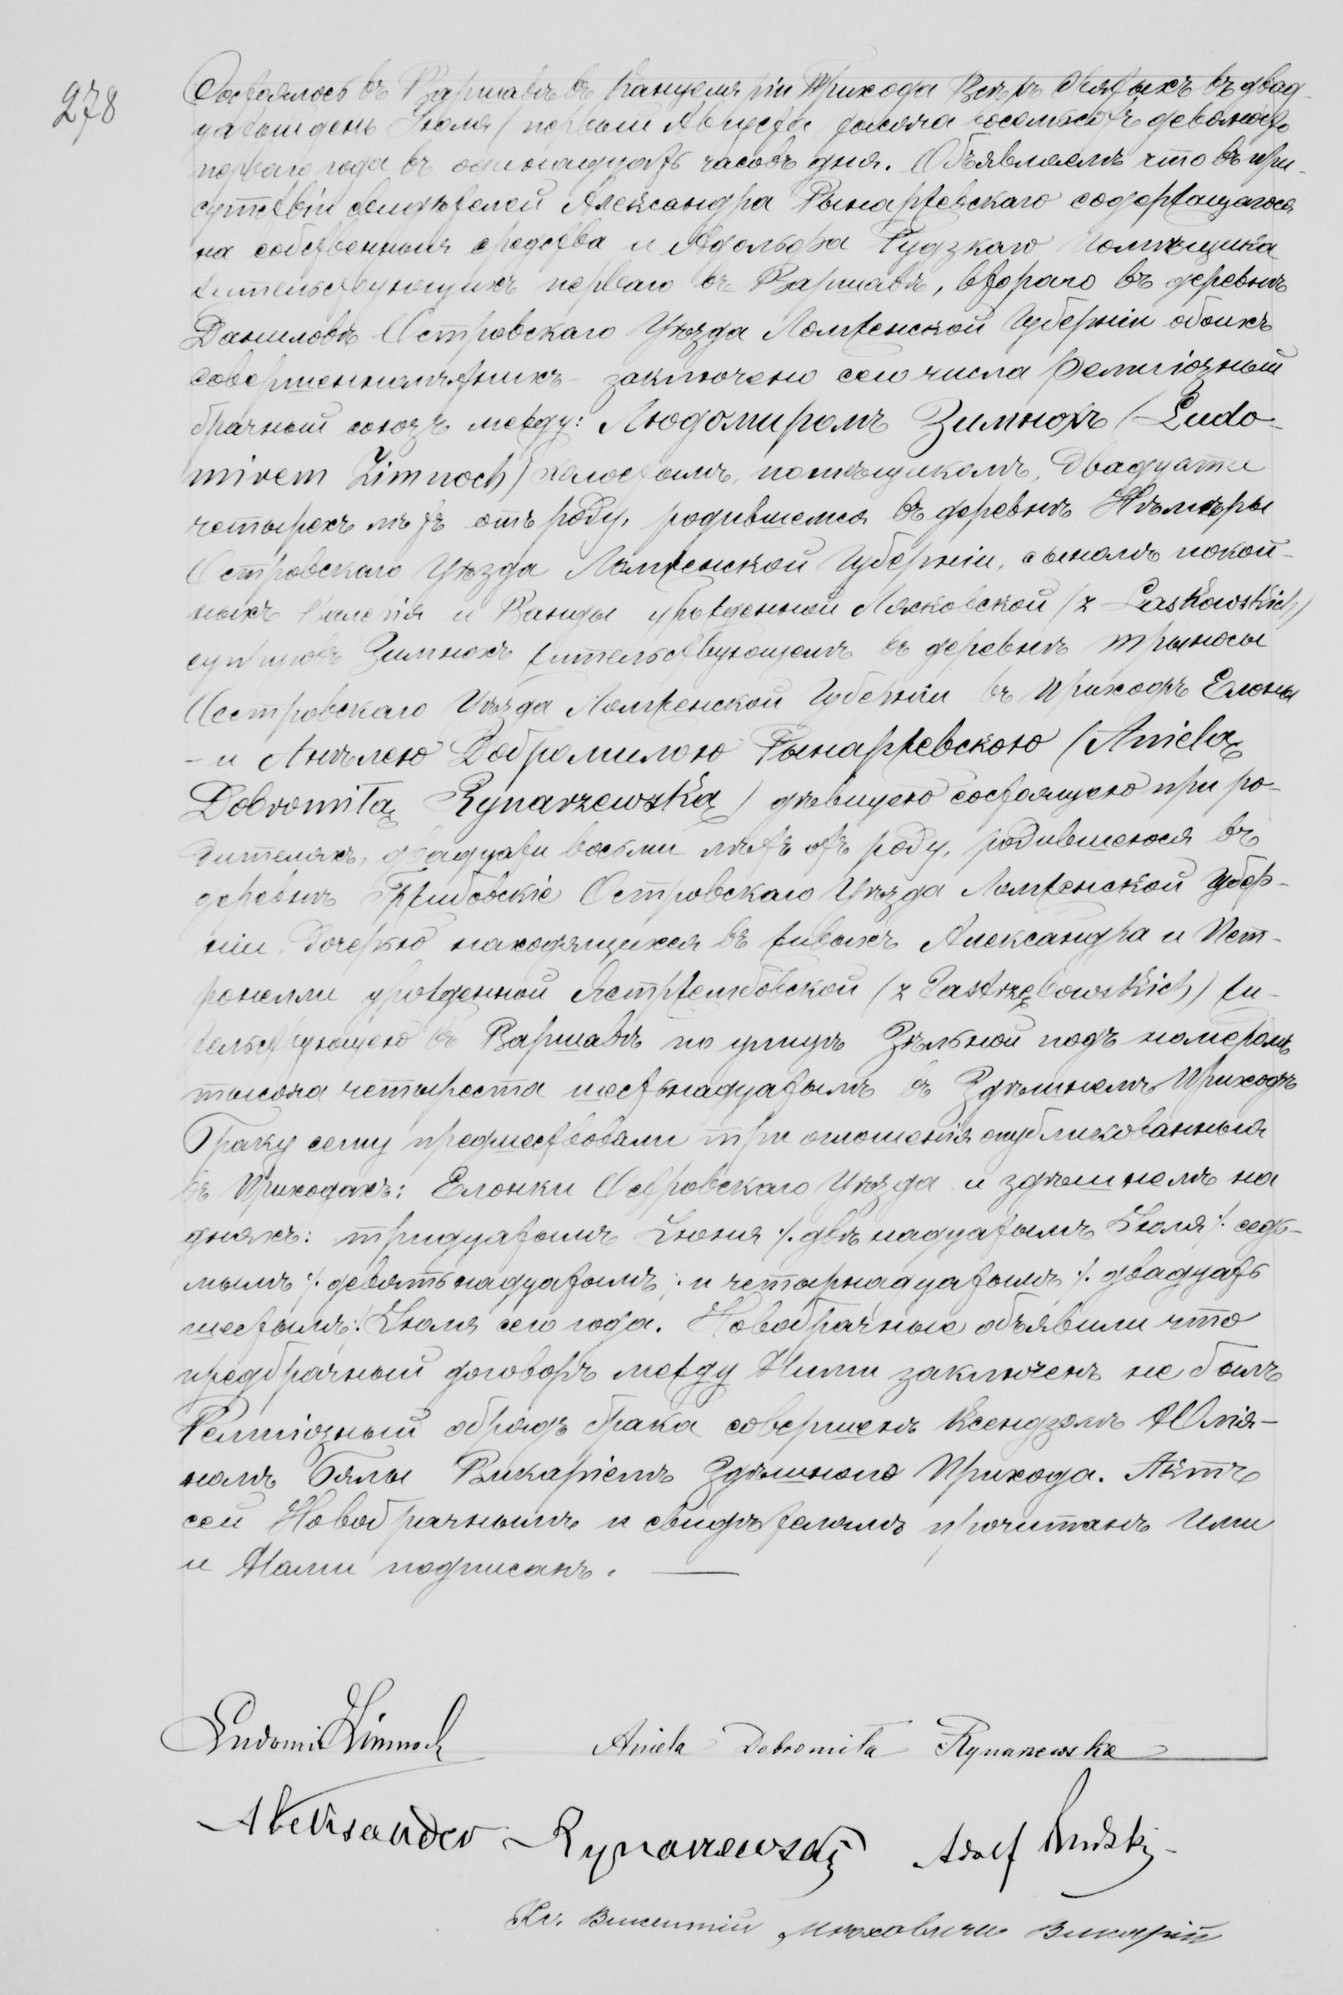 278
Состоялось въ Варшавѣ въ Канцеляріи Прихода Всѣхъ Святыхъ въ двад-
цатый день Іюля / первый Августа тысяча восемьсотъ девяносто
перваго года въ одинадцать часовъ дня. Объявляемъ что въ при-
сутствіи свидѣтелей Александра Рынаржевскаго содержащагося
на собственныя средства и Адольфа Рудзкаго помѣщика
жительствующихъ перваго въ Варшавѣ, втораго въ деревнѣ
Даниловѣ Островскаго Уѣзда Ломженской Губерніи обоихъ
совершеннолѣтнихъ – заключено сего числа религіозный
брачный союзъ между: Людомиромъ Зимнохъ (Ludo-
mirem Zimnoch) холостымъ, помѣщикомъ, двадцати
четырехъ лѣтъ отъ роду, родившемся въ деревнѣ Нѣмѣры
Островскаго Уѣзда Ломженской Губерніи, сыномъ покой-
ныхъ Валерія и Ванды урожденной Лясковской (z Laskowskich)
супруговъ Зимнохъ жительствующемъ въ деревнѣ Трыносы
Островскаго Уѣзда Ломженской Губерніи въ Приходѣ Елонки
– и Анѣлею Добромилою Рынаржевскою (Anielą
Dobromiłą Rynarzewską) дѣвицею состоящею при ро-
дителяхъ, двадцати восьми лѣтъ отъ роду, родившеюся въ
деревнѣ Гржибовскіе Островскаго Уѣзда Ломженской Губер-
ніи, дочерью находящихся въ живыхъ Александра и Пет-
ронелли урожденной Ястржембовской (z Jastrzębowskich) жи-
тельствующею въ Варшавѣ по улицѣ Зѣльной подъ номеромъ
тысяча четыреста шестьнадцатымъ въ Здѣшнемъ Приходѣ
Браку сему предшествовали три оглашенія опубликованныя
въ Приходахъ: Елонки Островскаго Уѣзда и здѣшнемъ на
дняхъ: тридцатымъ Іюня /. двѣнадцатымъ Іюля /. седь-
мымъ /. девятьнадцатымъ ./ и четырнадцатымъ /. двадцать
шестымъ ./ Іюля сего года. Новобрачные объявили что
предбрачный договоръ между Ними заключенъ не былъ
Религіозный обрядъ брака совершенъ Ксендзомъ Юлія-
номъ Бялы Викаріемъ Здѣшнаго Прихода. Актъ
сей Новобрачнымъ и свидѣтелямъ прочитанъ Ими
и Нами подписанъ. —
Ludomir Zimnoch Aniela Dobromiła Rynarzewska
Aleksander Rynarzewski Adolf Rudzki
Кс. Викентій Викарій